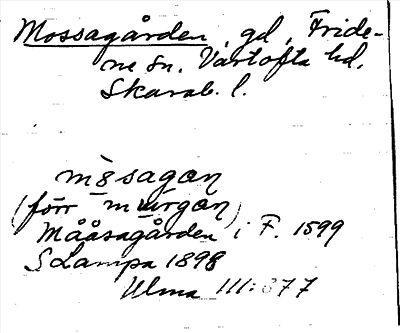 Mossagården, gd, Fride-
ne sn. Vartofta hd.
Skarab. l.
mòsagan
(förr murgan)
Mååsagården i F. 1599
S Lampa 1898
Ulma III: 377